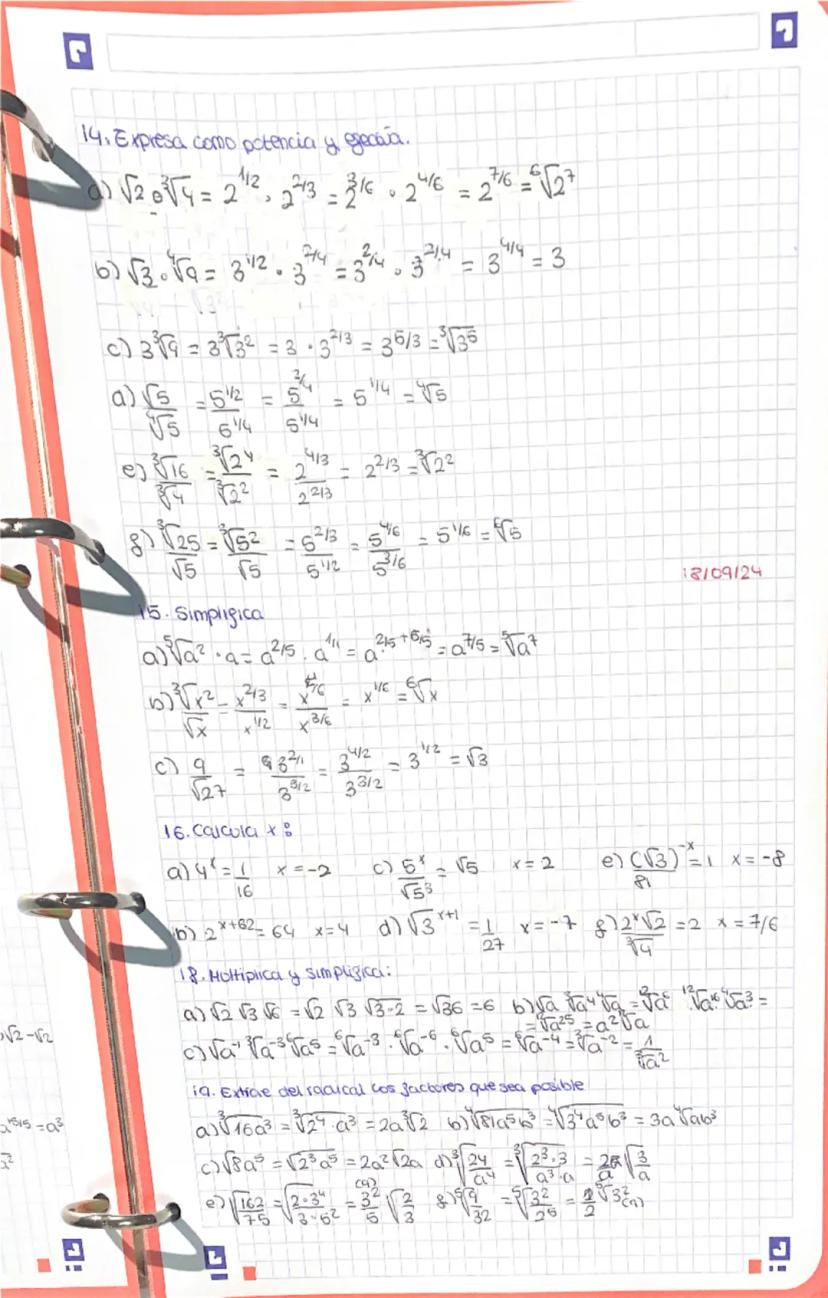 14. Expresa como potencia y ejecuta.
a) √2 · ∛4 = 2^1/2 · 2^2/3 = 2^3/6 · 2^4/6 = 2^7/6 = ⁶√2^7
b) √3 · ⁴√9 = 3^1/2 · 3^2/4 = 3^2/4 · 3^2/4 = 3^4/4 = 3
c) 3∛9 = 3∛3² = 3 · 3^2/3 = 3^5/3 = ∛3^5
d) √5/⁴√5 = 5^1/2/5^1/4 = 5^2/4/5^1/4 = 5^1/4 = ⁴√5
e) ∛16/∛4 = ∛2^4/∛2² = 2^4/3/2^2/3 = 2^2/3 = ∛2²
f) ∛25/√5 = ∛5²/√5 = 5^2/3/5^1/2 = 5^4/6/5^3/6 = 5^1/6 = ⁶√5
18/09/24
15. Simplifica
a) ⁵√a² · a = a^2/5 · a^1/1 = a^2/5+5/5 = a^7/5 = ⁵√a^7
b) ∛x²/√x = x^2/3/x^1/2 = x^4/6/x^3/6 = x^1/6 = ⁶√x
c) 9/√27 = 3^2/1/3^3/2 = 3^4/2/3^3/2 = 3^1/2 = √3
16. Calcula x:
a) 4^x = 1/16 x = -2 c) 5^x/√5³ = √5 x = 2 e) (√3)^-x/81 = 1 x = -8
b) 2^x+62 = 64 x = 4 d) √3^x+1 = 1/27 x = -7 f) 2^x√2/∛4 = 2 x = 7/6
18. Multiplica y simplifica:
a) √2 √3 √6 = √2 √3 √3·2 = √36 = 6 b) √a ∛a^4 ⁴√a = ¹²√a^6 ¹²√a^16 ¹²√a³ =
= ¹²√a^25 = a² ¹²√a
c) √a^-1 ∛a^-3 ⁶√a^5 = ⁶√a^-3 · ⁶√a^-6 · ⁶√a^5 = ⁶√a^-4 = ∛a^-2 = 1/∛a²
19. Extrae del radical los factores que sea posible
a) ∛16a³ = ∛2^4 · a³ = 2a∛2 b) ⁴√81a^5b³ = ⁴√3^4a^5b³ = 3a⁴√ab³
c) √8a^5 = √2³a^5 = 2a²√2a d) ∛24/a^4 = ∛2³·3/a³·a = 2/a ∛3/a
e) √162/75 = √2·3^4/3·5² = 3²/5 √2/3 f) ⁵√9/32 = ⁵√3²/2^5 = 1/2 ⁵√3²
(9)
(9)
√2-√2
a^15/5 = a³